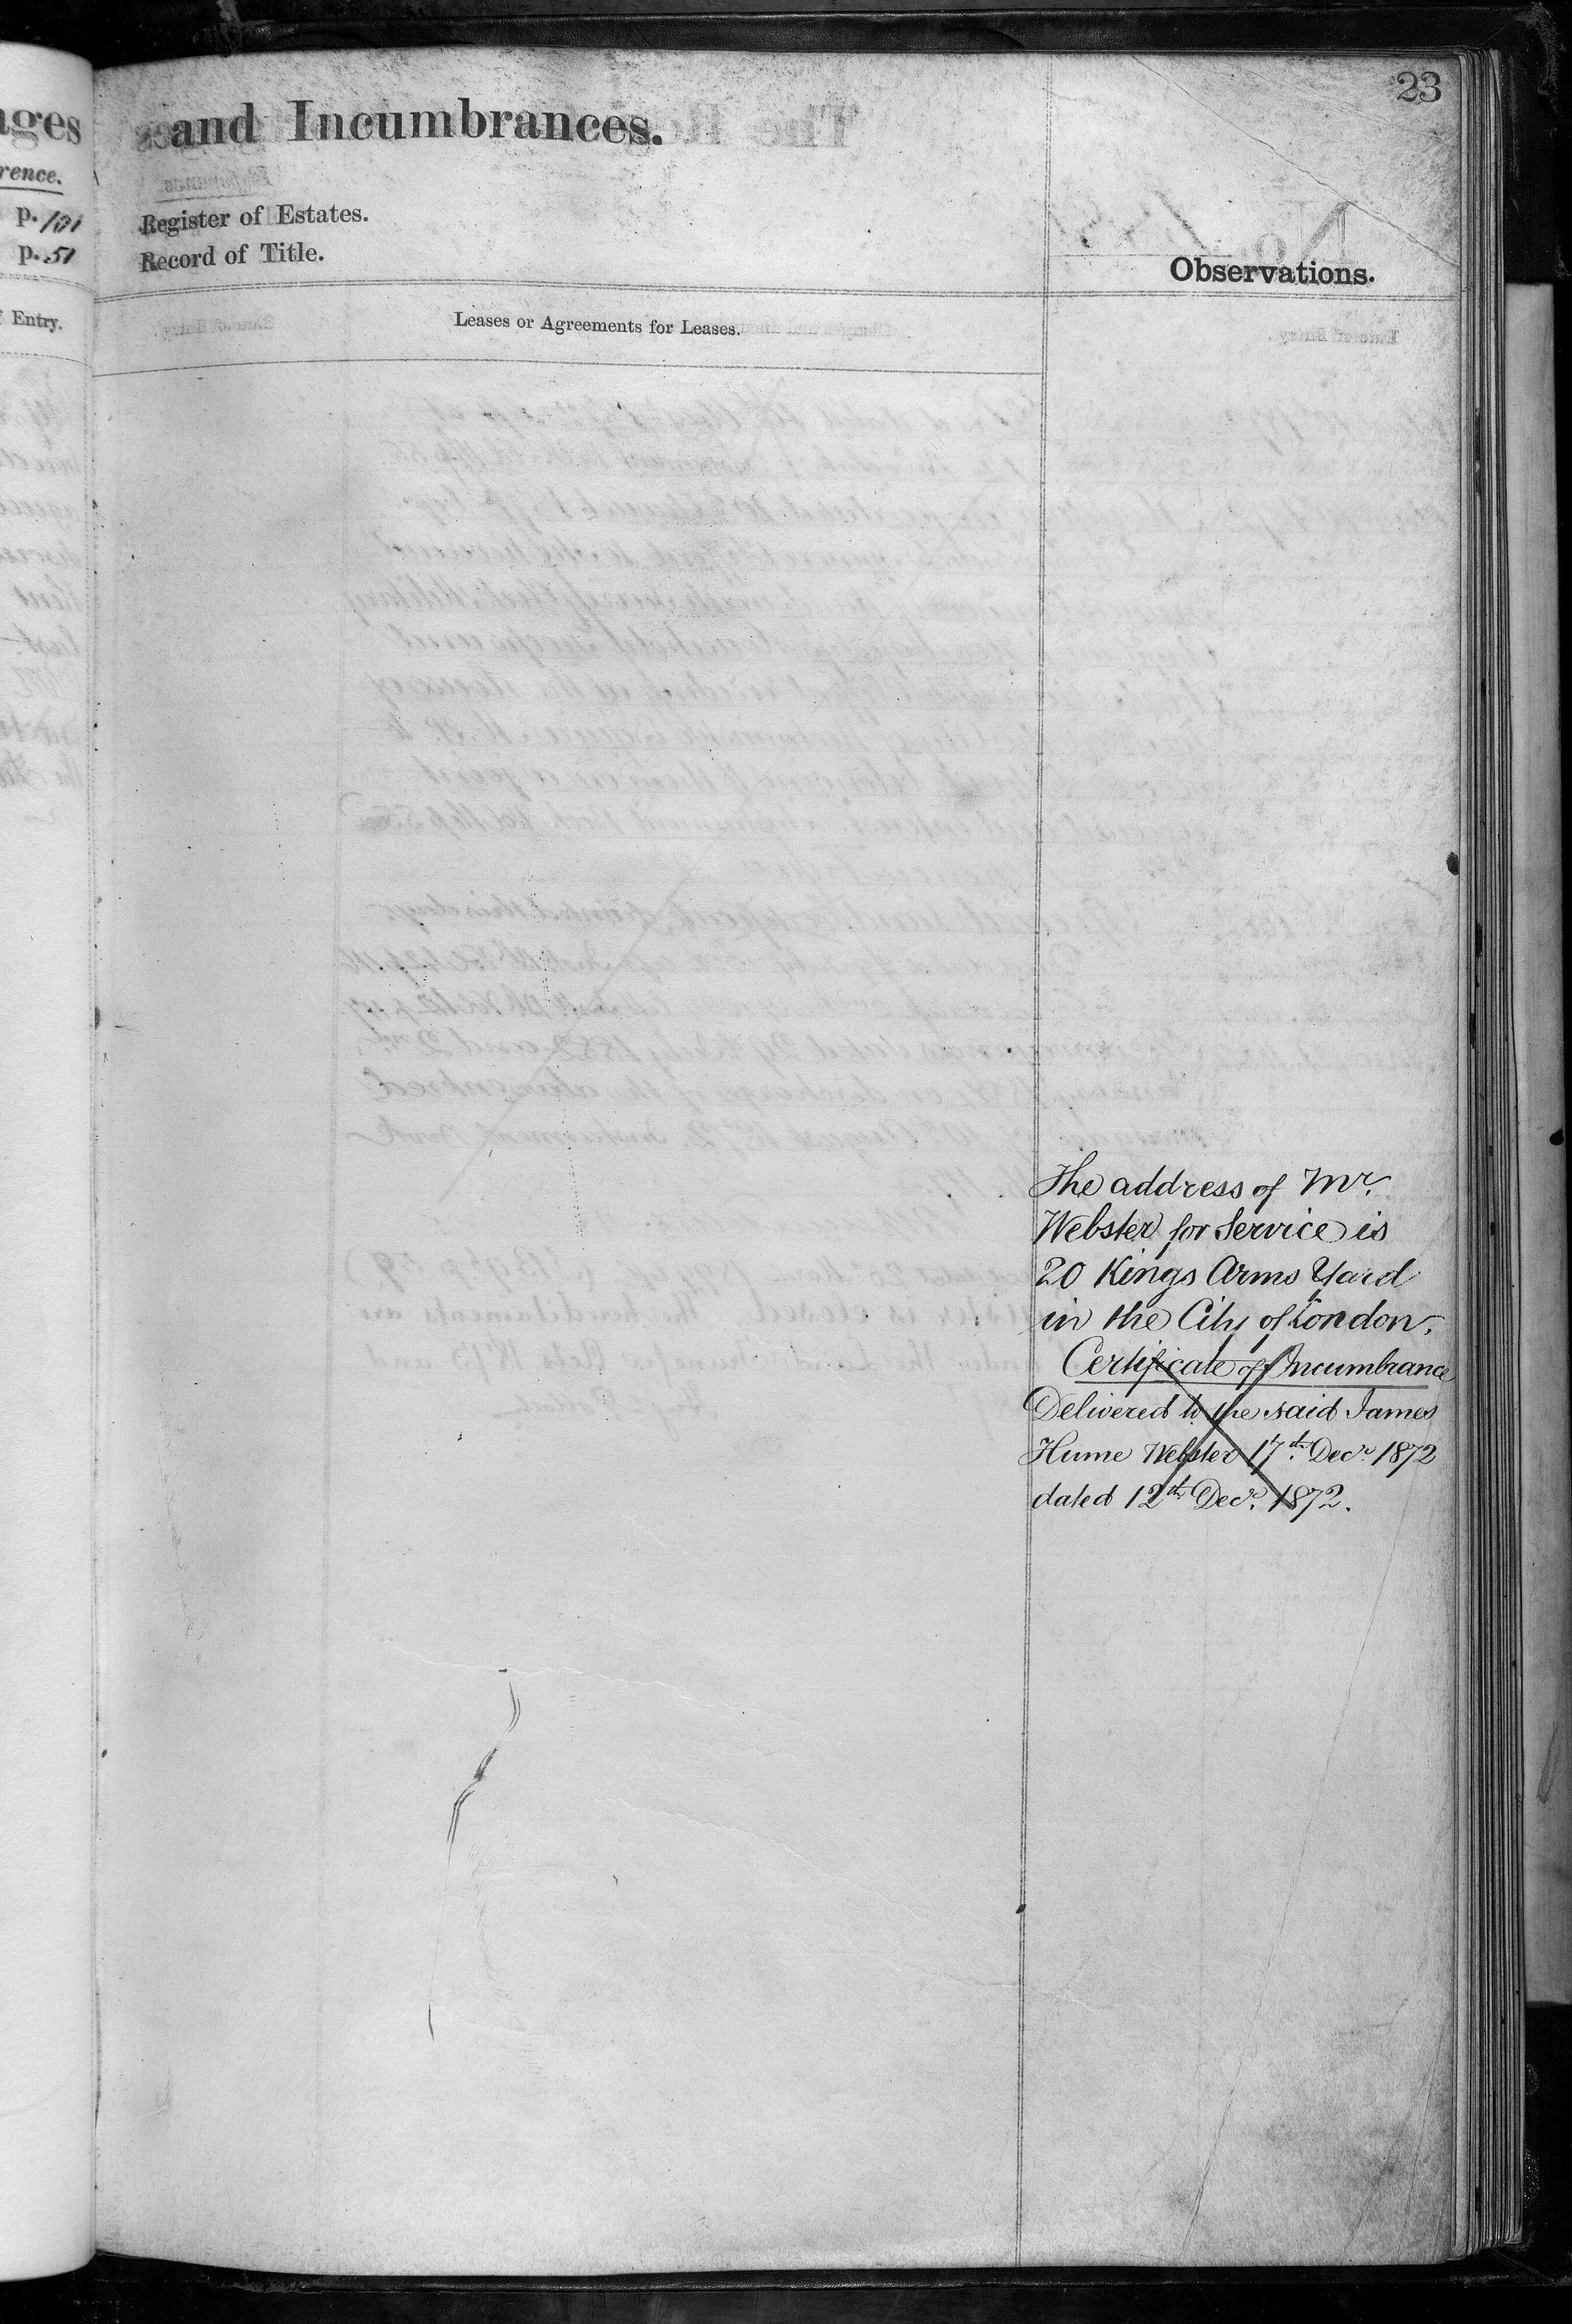 23
ages
and Incumbrances.
rence.
p. 101
Register of Estates.
p. 51
Record of Title.
Observations.
f Entry.
Leases or Agreements for Leases.
The address of Mr.
Webster for Service is
20 Kings Arms Yard
in the City of London.
Certificate of Incumbrance
Delivered to the said James
Hume Webster 17th Decr. 1872
dated 12th Decr. 1872.